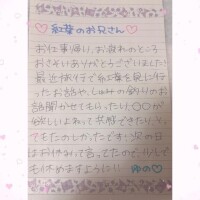 ♡紅葉のお兄さん♡
お仕事帰り、お疲れのところ
おさそいありがとうございました
最近お行で紅葉を見に行っ
たお話や、しゅみの釣りのお
話聞かせてもらったり、〇〇が
欲しいよねって共感できたりとっ
てもたのしかったです♪次の日
はお休みって言ってたのでいっし
ても休めますように!! ゆの♡